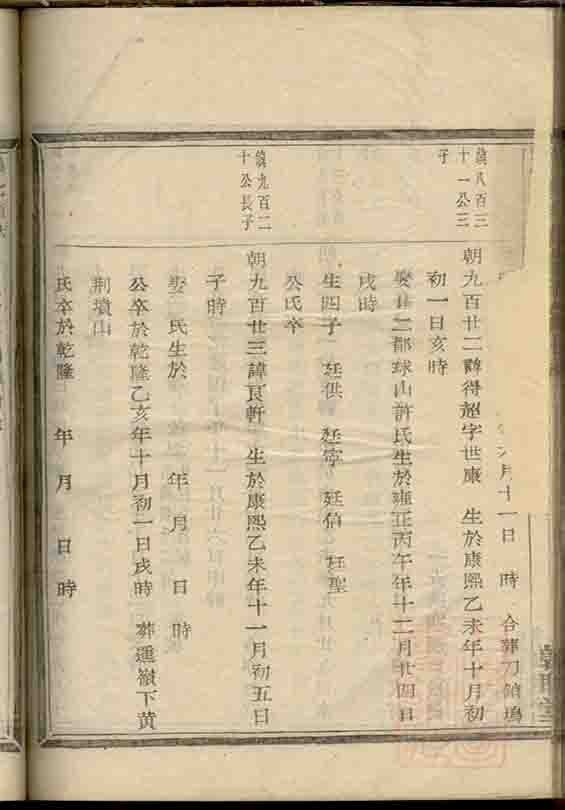 六月十一日 時 合葬刀鎗塢
鎮八百三
十一公三
子
朝九百廿二諱得超字世康 生於康熙乙未年十月初
初一日亥時
娶廿二都球山許氏生於雍正丙午年十二月廿四日
戌時
生四子 廷供 廷寧 廷伯 廷聖
公氏卒
鎮九百二
十公長子
朝九百廿三諱良軒 生於康熙乙未年十一月初五日
子時
娶 氏生於 年 月 日 時
公卒於乾隆乙亥年十月初一日戌時 葬進嶺下黄
荆墳山
氏卒於乾隆 年 月 日 時